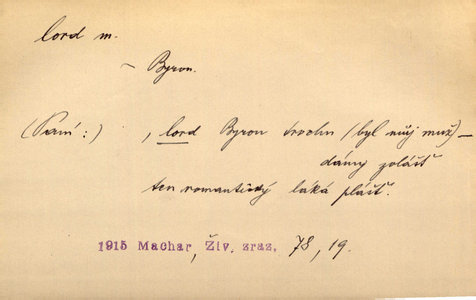 lord m.
~ Byron.
(Paní:) , lord Byron trochu (byl můj muž) –
dámy zvlášť
ten romantický láká plášť.
1915 Machar, Živ. zraz. 78, 19.